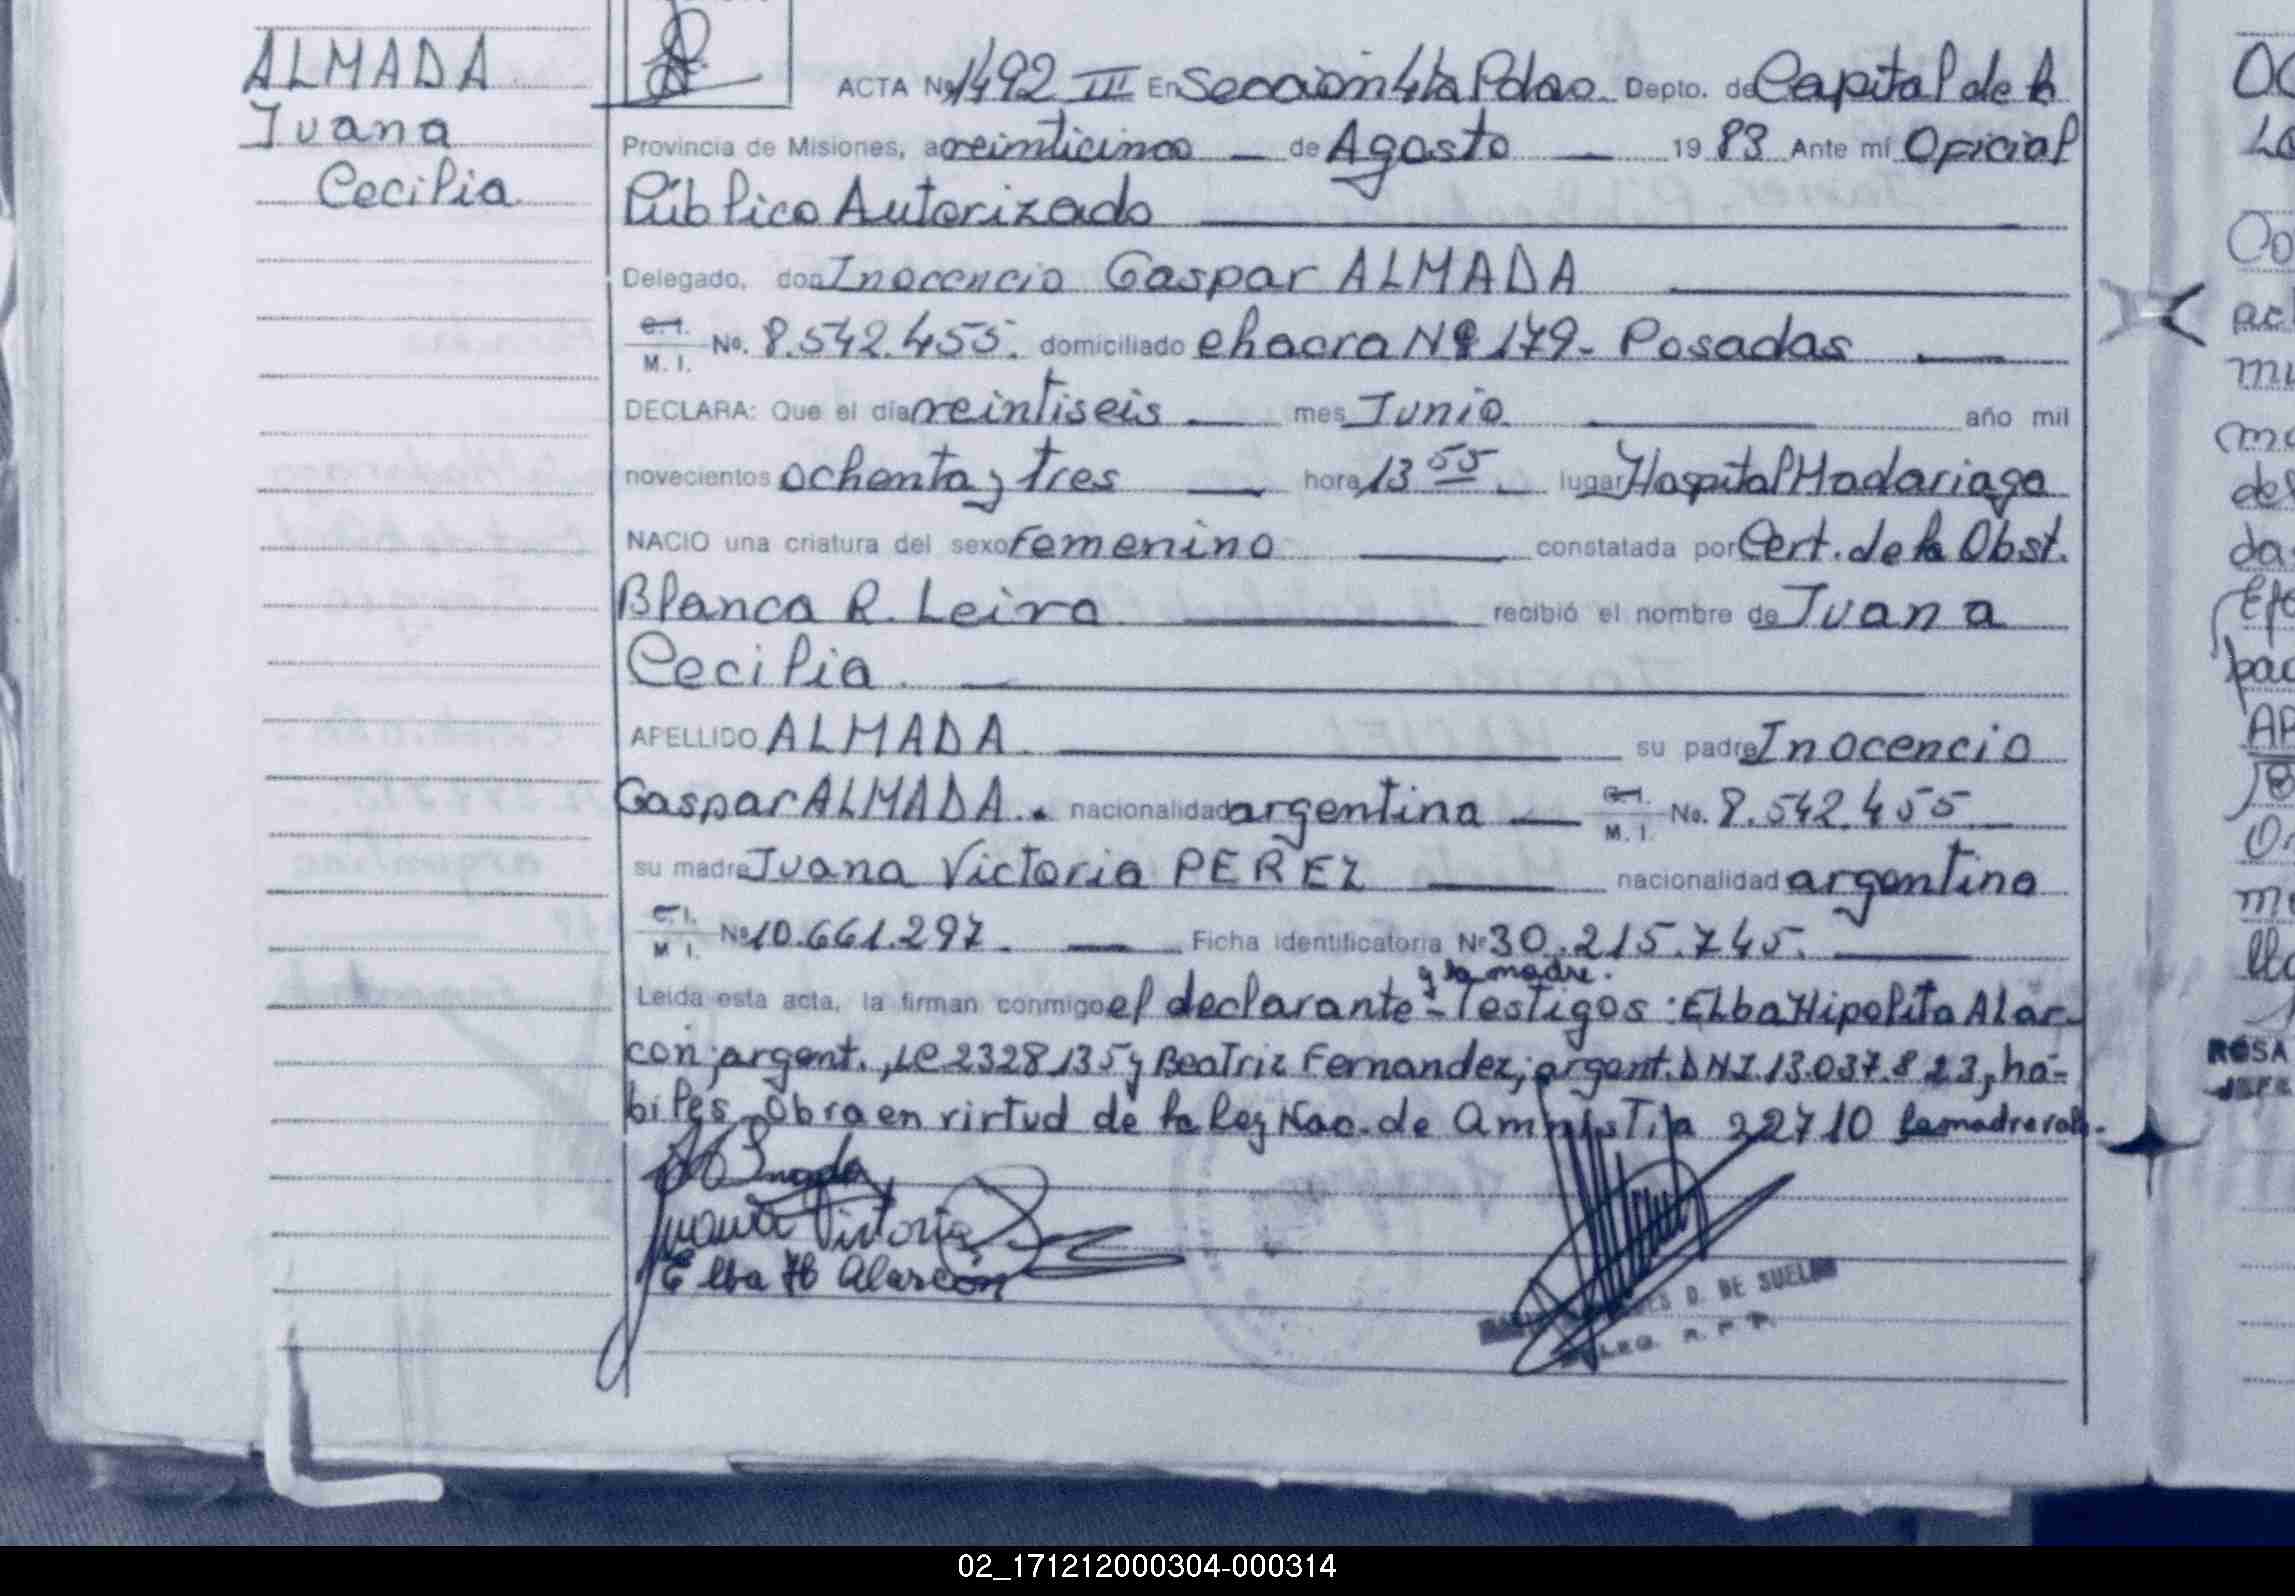 ALMADA
Juana
Cecilia
ACTA Nº 1492 III En Sección 4ta Pdas. Depto. de Capital de la
Provincia de Misiones, a veinticinco de Agosto 1983 Ante mí Oficial
Público Autorizado
Delegado, don Inocencio Gaspar ALMADA
C.I.
M. I. No. 8.542.455. domiciliado chacra Nº 179- Posadas
DECLARA: Que el día veintiseis mes Junio año mil
novecientos ochenta y tres hora 13 55 lugar Hospital Madariaga
NACIO una criatura del sexo femenino constatada por Cert. de la Obst.
Blanca R. Leiva recibió el nombre de Juana
Cecilia
APELLIDO ALMADA su padre Inocencio
Gaspar ALMADA. nacionalidad argentina C.I.
M. I. No. 8.542.455
su madre Juana Victoria PEREZ nacionalidad argentina
C.I.
M I. Nº 10.661.297. Ficha identificatoria Nº 30.215.745.
y la madre.
Leída esta acta, la firman conmigo el declarante - Testigos: Elba Hipolita Alar-
con; argent., LC 2328135 y Beatriz Fernandez; argent. DNI. 13.037.823, há-
biles. Obra en virtud de la Ley Nac. de Amnistia 22710 la madre
Juana Victoria
Elba H Alarcón
D. DE SUELDO
ROSA
02_171212000304-000314